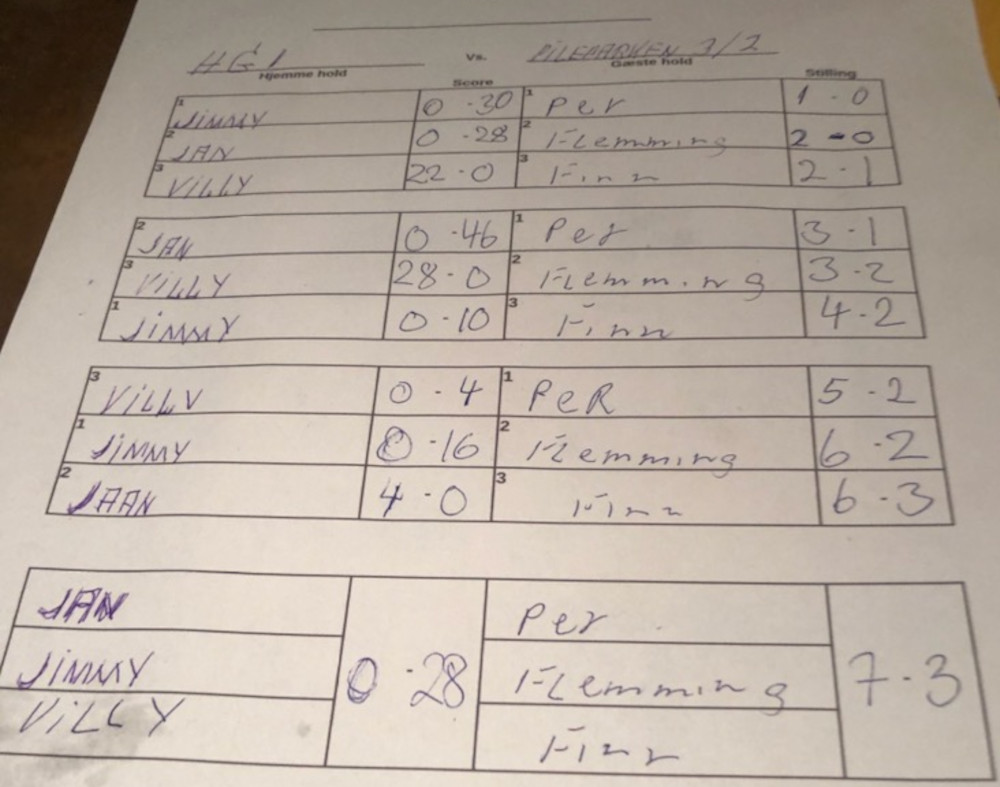 HG1 Vs. PILEPARKEN 3/2
Hjemme hold Gæste hold
Score Stilling
1 JIMMY 0 - 30 1 Per 1 - 0
2 JAN 0 - 28 2 Flemming 2 - 0
3 VILLY 22 - 0 3 Finn 2 - 1
2 JAN 0 - 46 1 Per 3 - 1
3 VILLY 28 - 0 2 Flemming 3 - 2
1 JIMMY 0 - 10 3 Finn 4 - 2
3 VILLY 0 - 4 1 PeR 5 - 2
1 JIMMY 0 - 16 2 Flemming 6 - 2
2 JAAN 4 - 0 3 Finn 6 - 3
JAN Per
JIMMY 0 - 28 Flemming 7 - 3
VILLY Finn